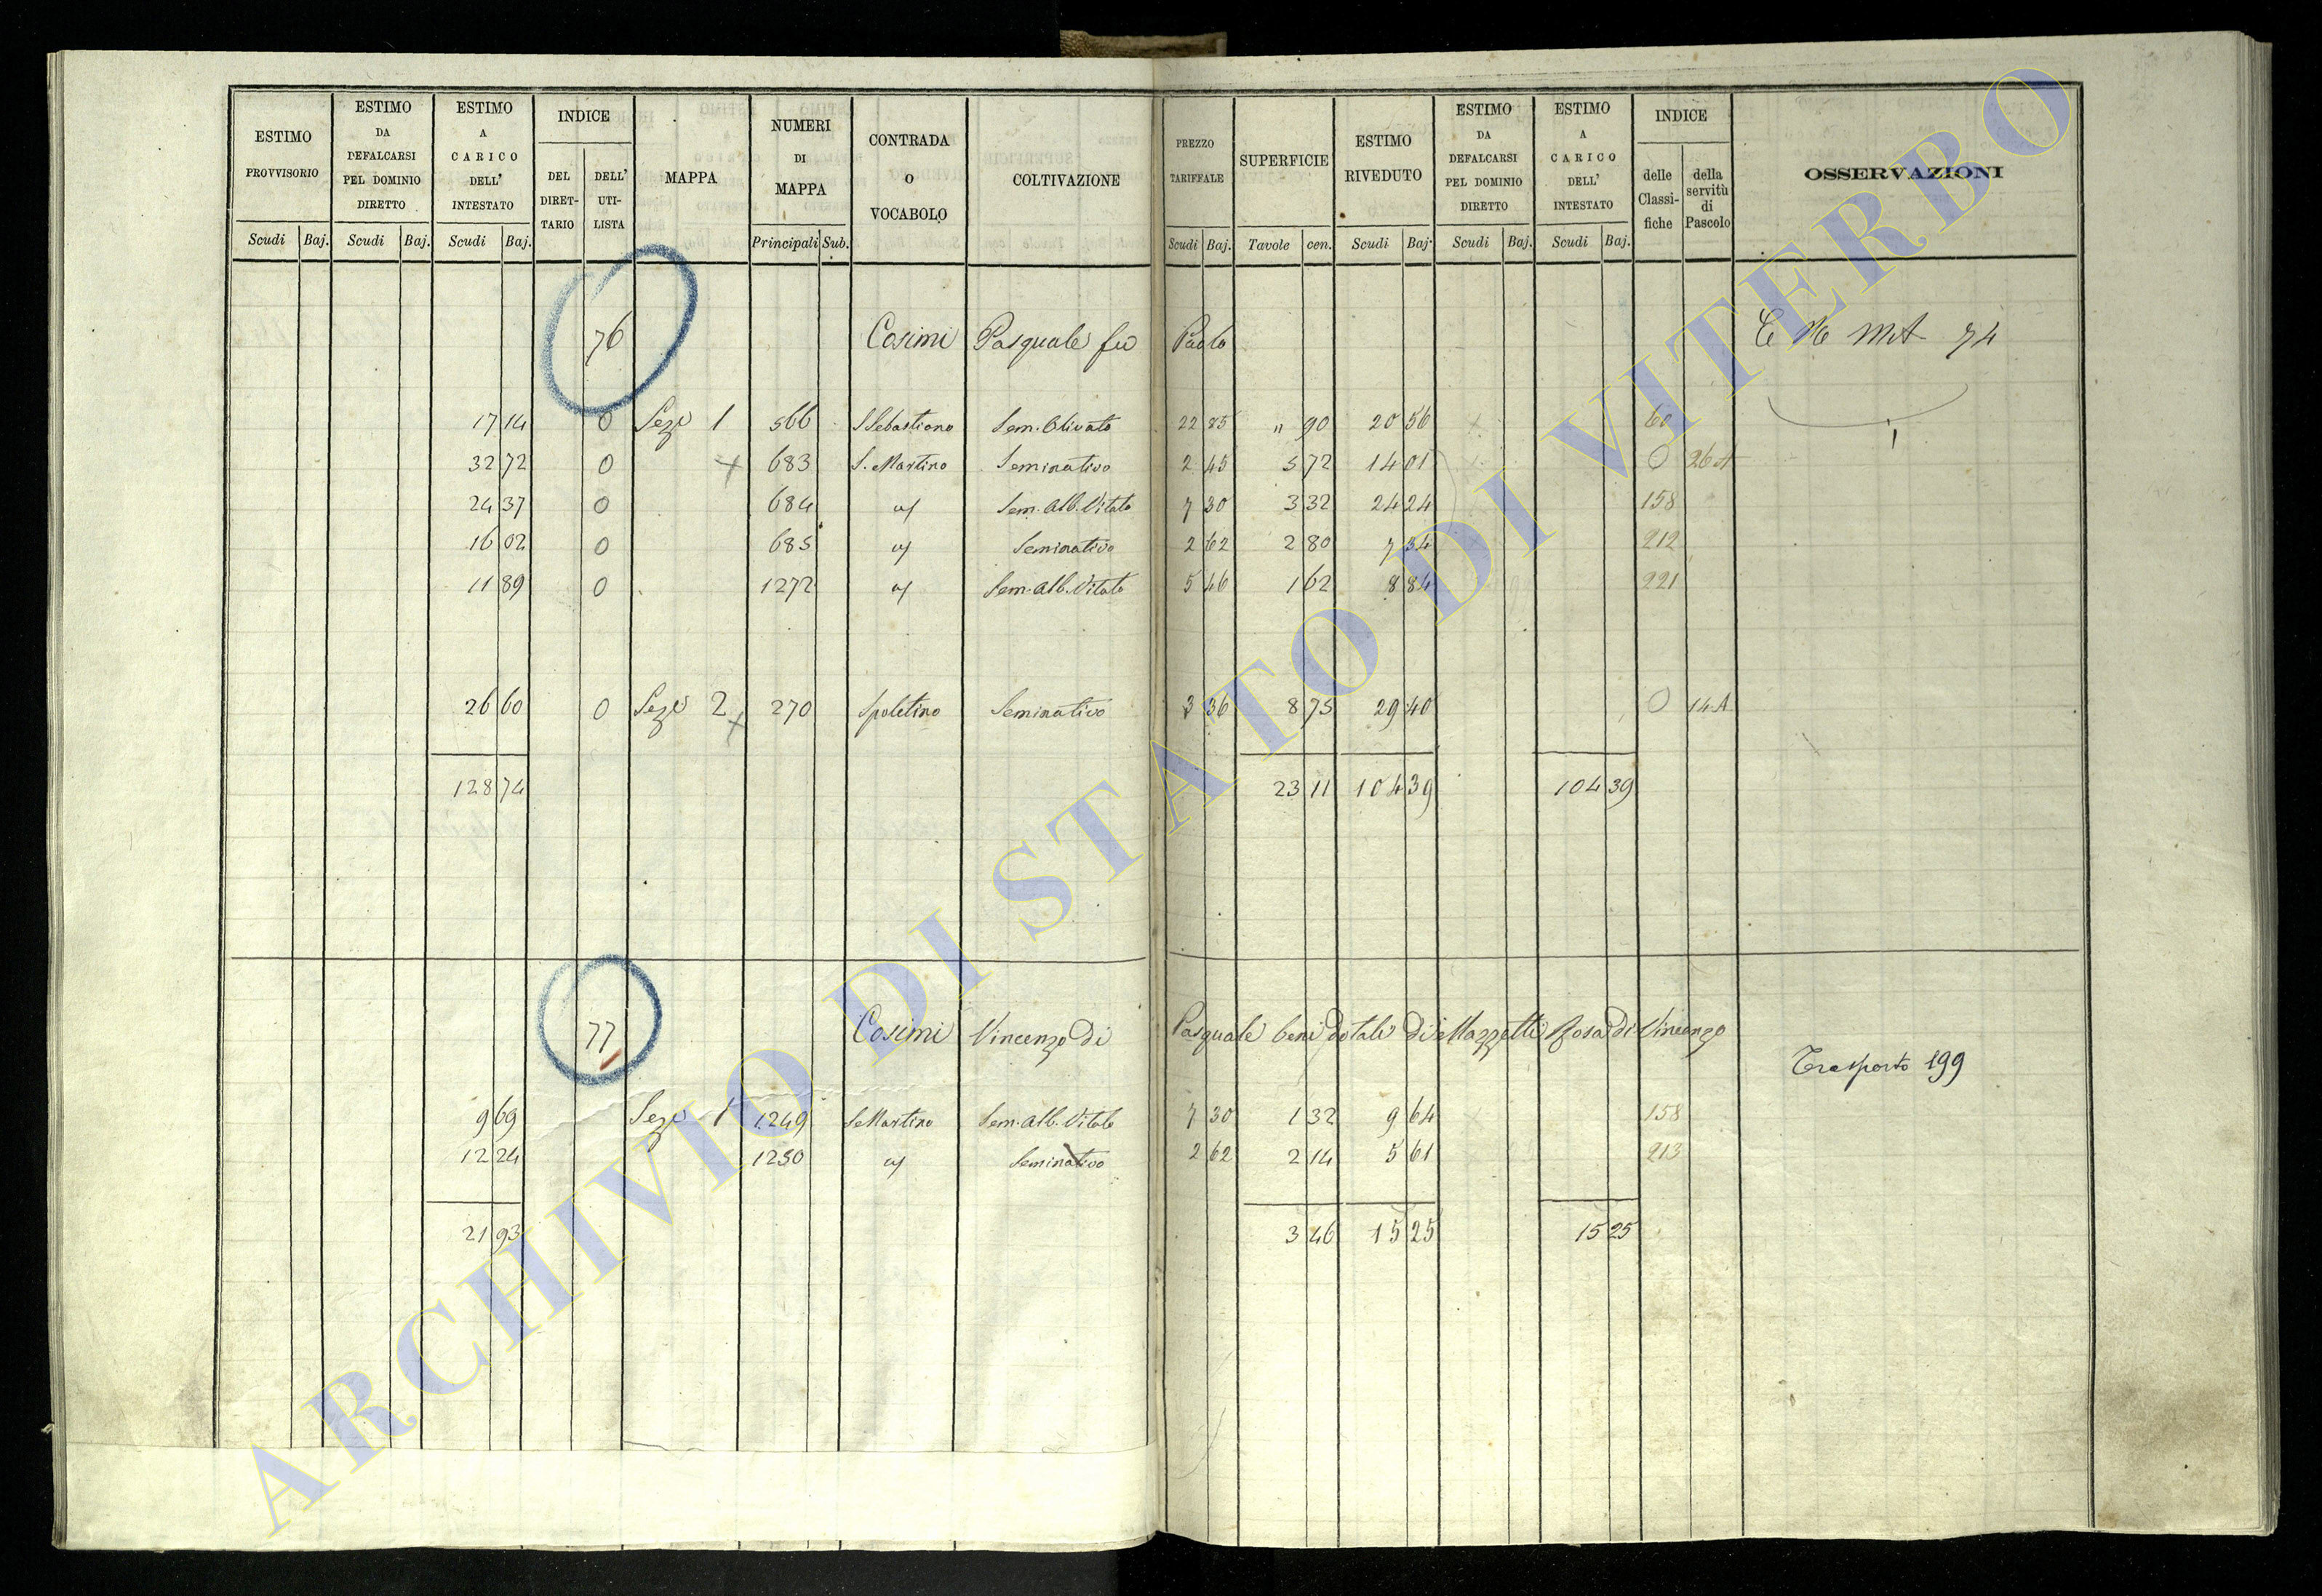 ESTIMO PROVVISORIO
ESTIMO DA DEFALCARSI PEL DOMINIO DIRETTO
ESTIMO A CARICO DELL' INTESTATO
INDICE
DEL DIRETTARIO
DELL' UTILISTA
MAPPA
NUMERI DI MAPPA
CONTRADA O VOCABOLO
COLTIVAZIONE
PREZZO TARIFFALE
SUPERFICIE
ESTIMO RIVEDUTO
ESTIMO DA DEFALCARSI PEL DOMINIO DIRETTO
ESTIMO A CARICO DELL' INTESTATO
INDICE
delle Classifiche
della servitù di Pascolo
OSSERVAZIONI
Scudi Baj. Scudi Baj. Scudi Baj. Principali Sub. Scudi Baj. Tavole cen. Scudi Baj. Scudi Baj. Scudi Baj.
76 Cosimi Pasquale fu Paolo 74
17 14 0 Sezе 1 566 S Sebastiano Sem. Olivato 22 85 " 90 20 56 60
32 72 0 + 683 S. Martino Seminativo 2 45 5 72 14 01 0 26 A
24 37 0 684 Sem. Alb. Vitato 7 30 3 32 24 24 158
16 02 0 685 Seminativo 2 62 2 80 7 34 212
11 89 0 1272 Sem. Alb. Vitato 5 46 1 62 8 84 221
26 60 0 Sezе 2 + 270 Spoletino Seminativo 3 36 8 75 29 40 0 14 A
128 74 23 11 104 39 104 39
77 Cosimi Vincenzo di Pasquale beni dotali di Mazzetti Rosa di Vincenzo
Trasporto 199
9 69 Sezе 1 1249 S Martino Sem. Alb. Vitato 7 30 1 32 9 64 158
12 24 1250 Seminativo 2 62 2 14 5 61 213
21 93 3 46 15 25 15 25
ARCHIVIO DI STATO DI VITERBO